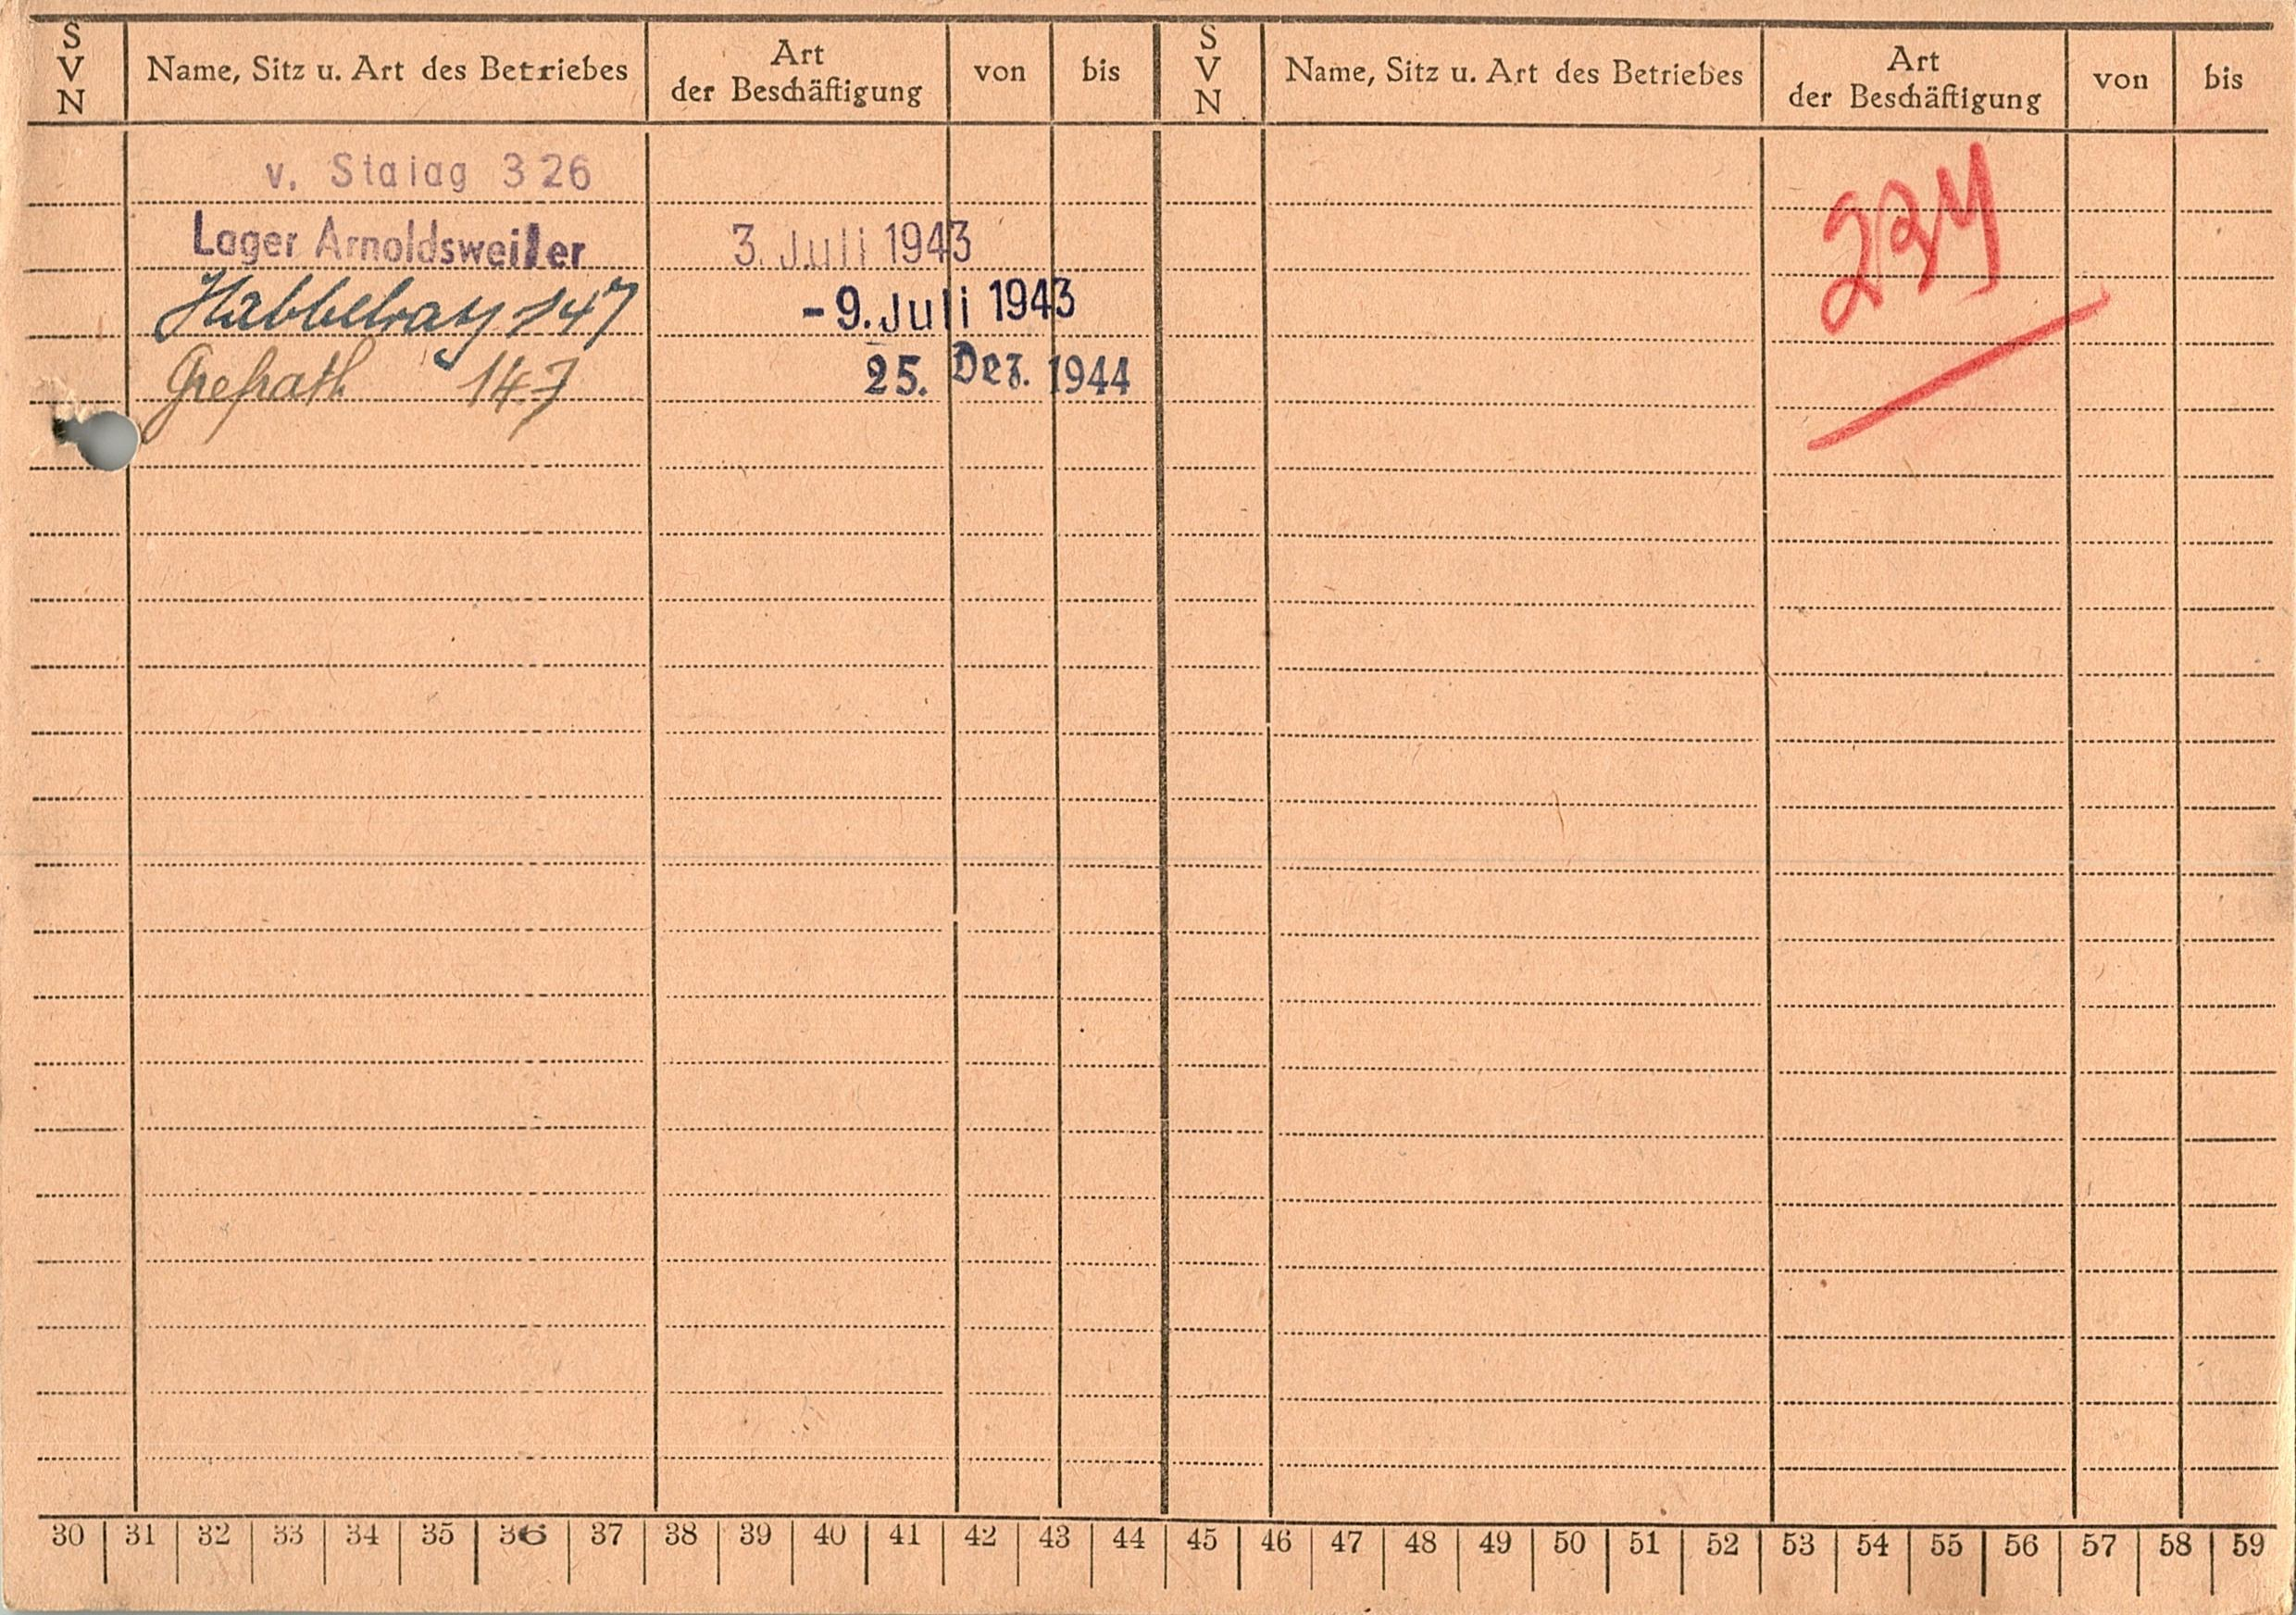 S V N Name, Sitz u. Art des Betriebes Art der Beschäftigung von bis S V N Name, Sitz u. Art des Betriebes Art der Beschäftigung von bis
v. Stalag 326
Lager Arnoldsweiler 3. Juli 1943
Habbelrath 147 -9. Juli 1943
Grefrath 147 25. Dez. 1944
30 31 32 33 34 35 36 37 38 39 40 41 42 43 44 45 46 47 48 49 50 51 52 53 54 55 56 57 58 59